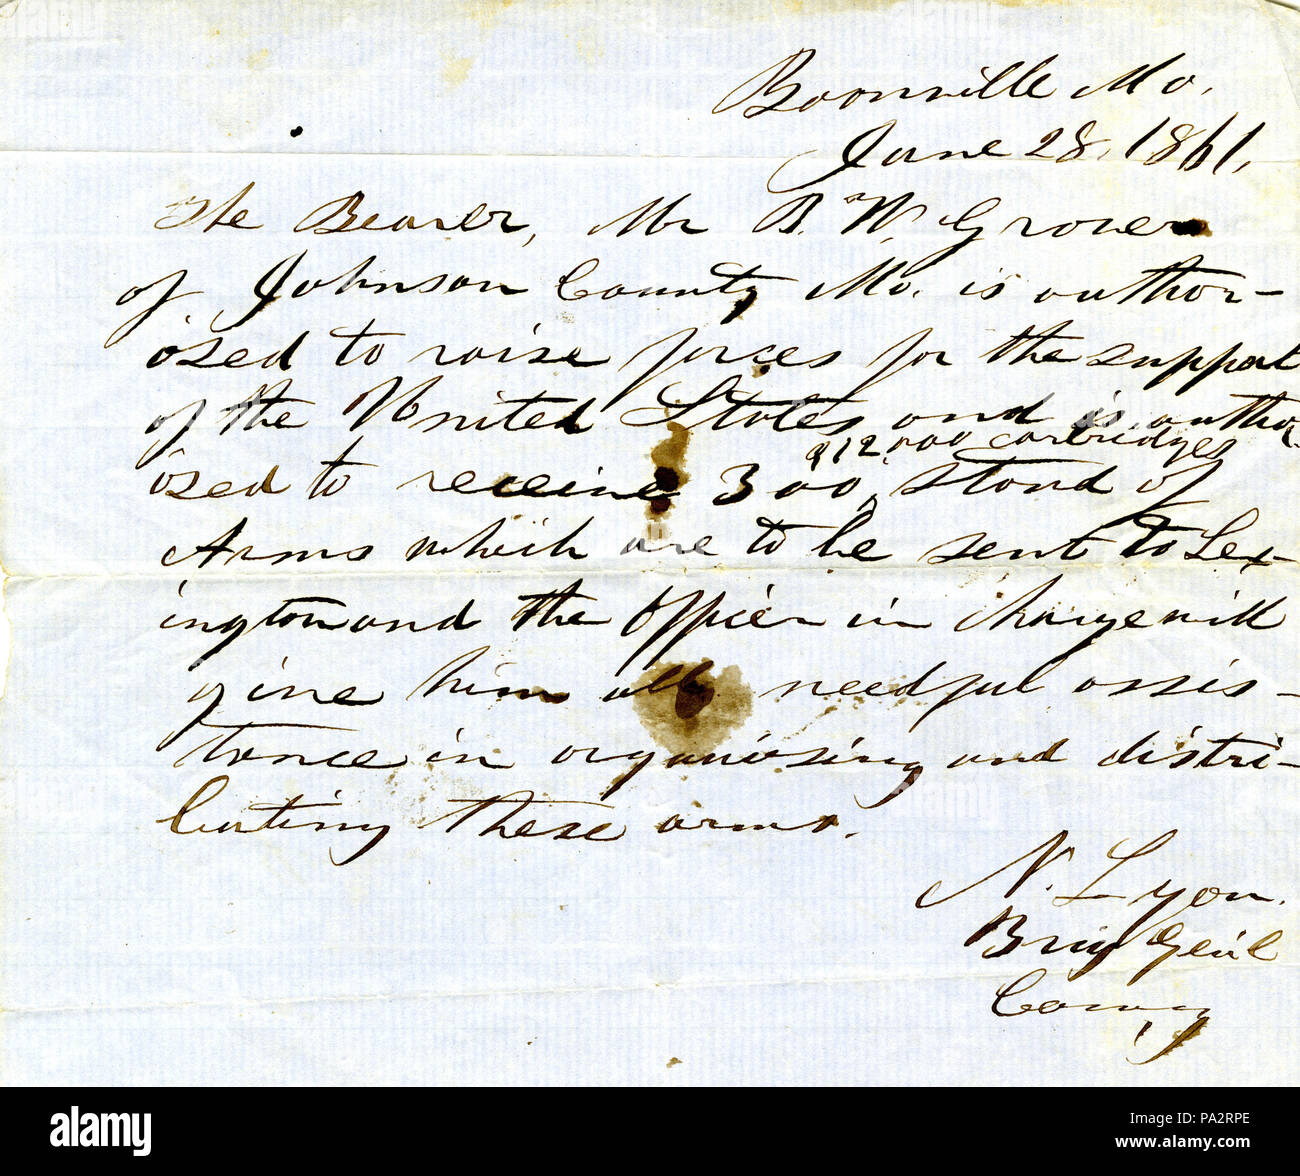 Boonville Mo.
June 28, 1861.
The Bearer, Mr B. W. Grover
of Johnson County Mo. is author-
ised to raise forces for the support
of the United States and is author
& 12,000 cartridges
ised to receive 300 stand of
Arms which are to be sent to Lex-
ington and the officer in charge will
give him all needful assis-
tance in organising and distri-
buting these arms.
N. Lyon.
Brig Gen'l
Com'g
alamy
alamy stock photo
PA2RPE
www.alamy.com